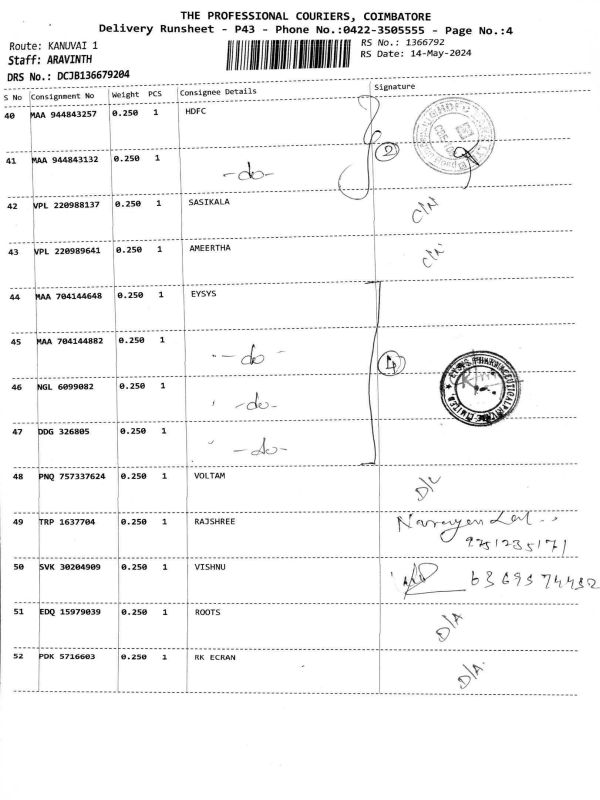 THE PROFESSIONAL COURIERS, COIMBATORE
Delivery Runsheet - P43 - Phone No.:0422-3505555 - Page No.:4
Route: KANUVAI 1 RS No.: 1366792
Staff: ARAVINTH RS Date: 14-May-2024
DRS No.: DCJB136679204
S No Consignment No Weight PCS Consignee Details Signature
40 MAA 944843257 0.250 1 HDFC
41 MAA 944843132 0.250 1 -do- 2
42 VPL 220988137 0.250 1 SASIKALA C/N
43 VPL 220989641 0.250 1 AMEERTHA C/N
44 MAA 704144648 0.250 1 EYSYS
45 MAA 704144882 0.250 1 -do- 4
46 NGL 6099082 0.250 1 -do-
47 DDG 326805 0.250 1 -do-
48 PNQ 757337624 0.250 1 VOLTAM D/L
49 TRP 1637704 0.250 1 RAJSHREE Narayen Lal
9251235171
50 SVK 30204909 0.250 1 VISHNU 6369574432
51 EDQ 15979039 0.250 1 ROOTS D/A
52 PDK 5716603 0.250 1 RK ECRAN D/A